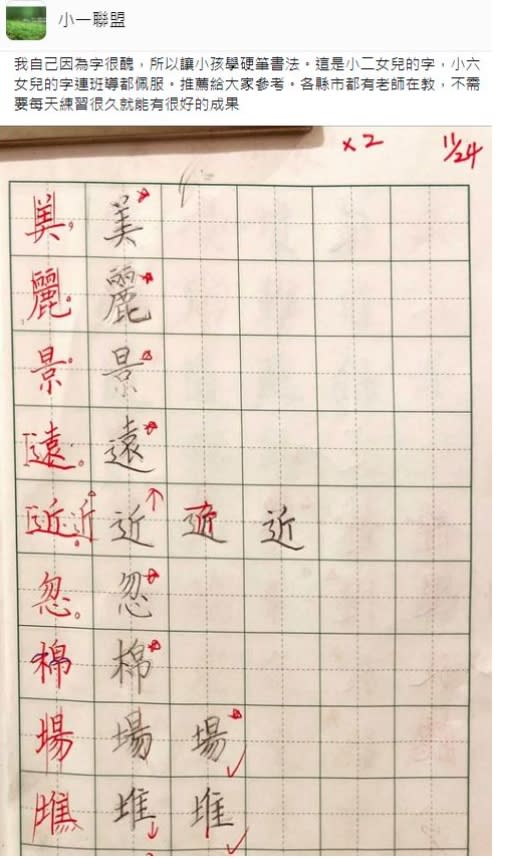 小一聯盟
我自己因為字很醜，所以讓小孩學硬筆書法。這是小二女兒的字，小六
女兒的字連班導都佩服。推薦給大家參考。各縣市都有老師在教，不需
要每天練習很久就能有很好的成果
x2 11/24
美 美
麗 麗
景 景
遠 遠
近近 近 近 近
忽 忽
棉 棉
場 場 場
堆 堆